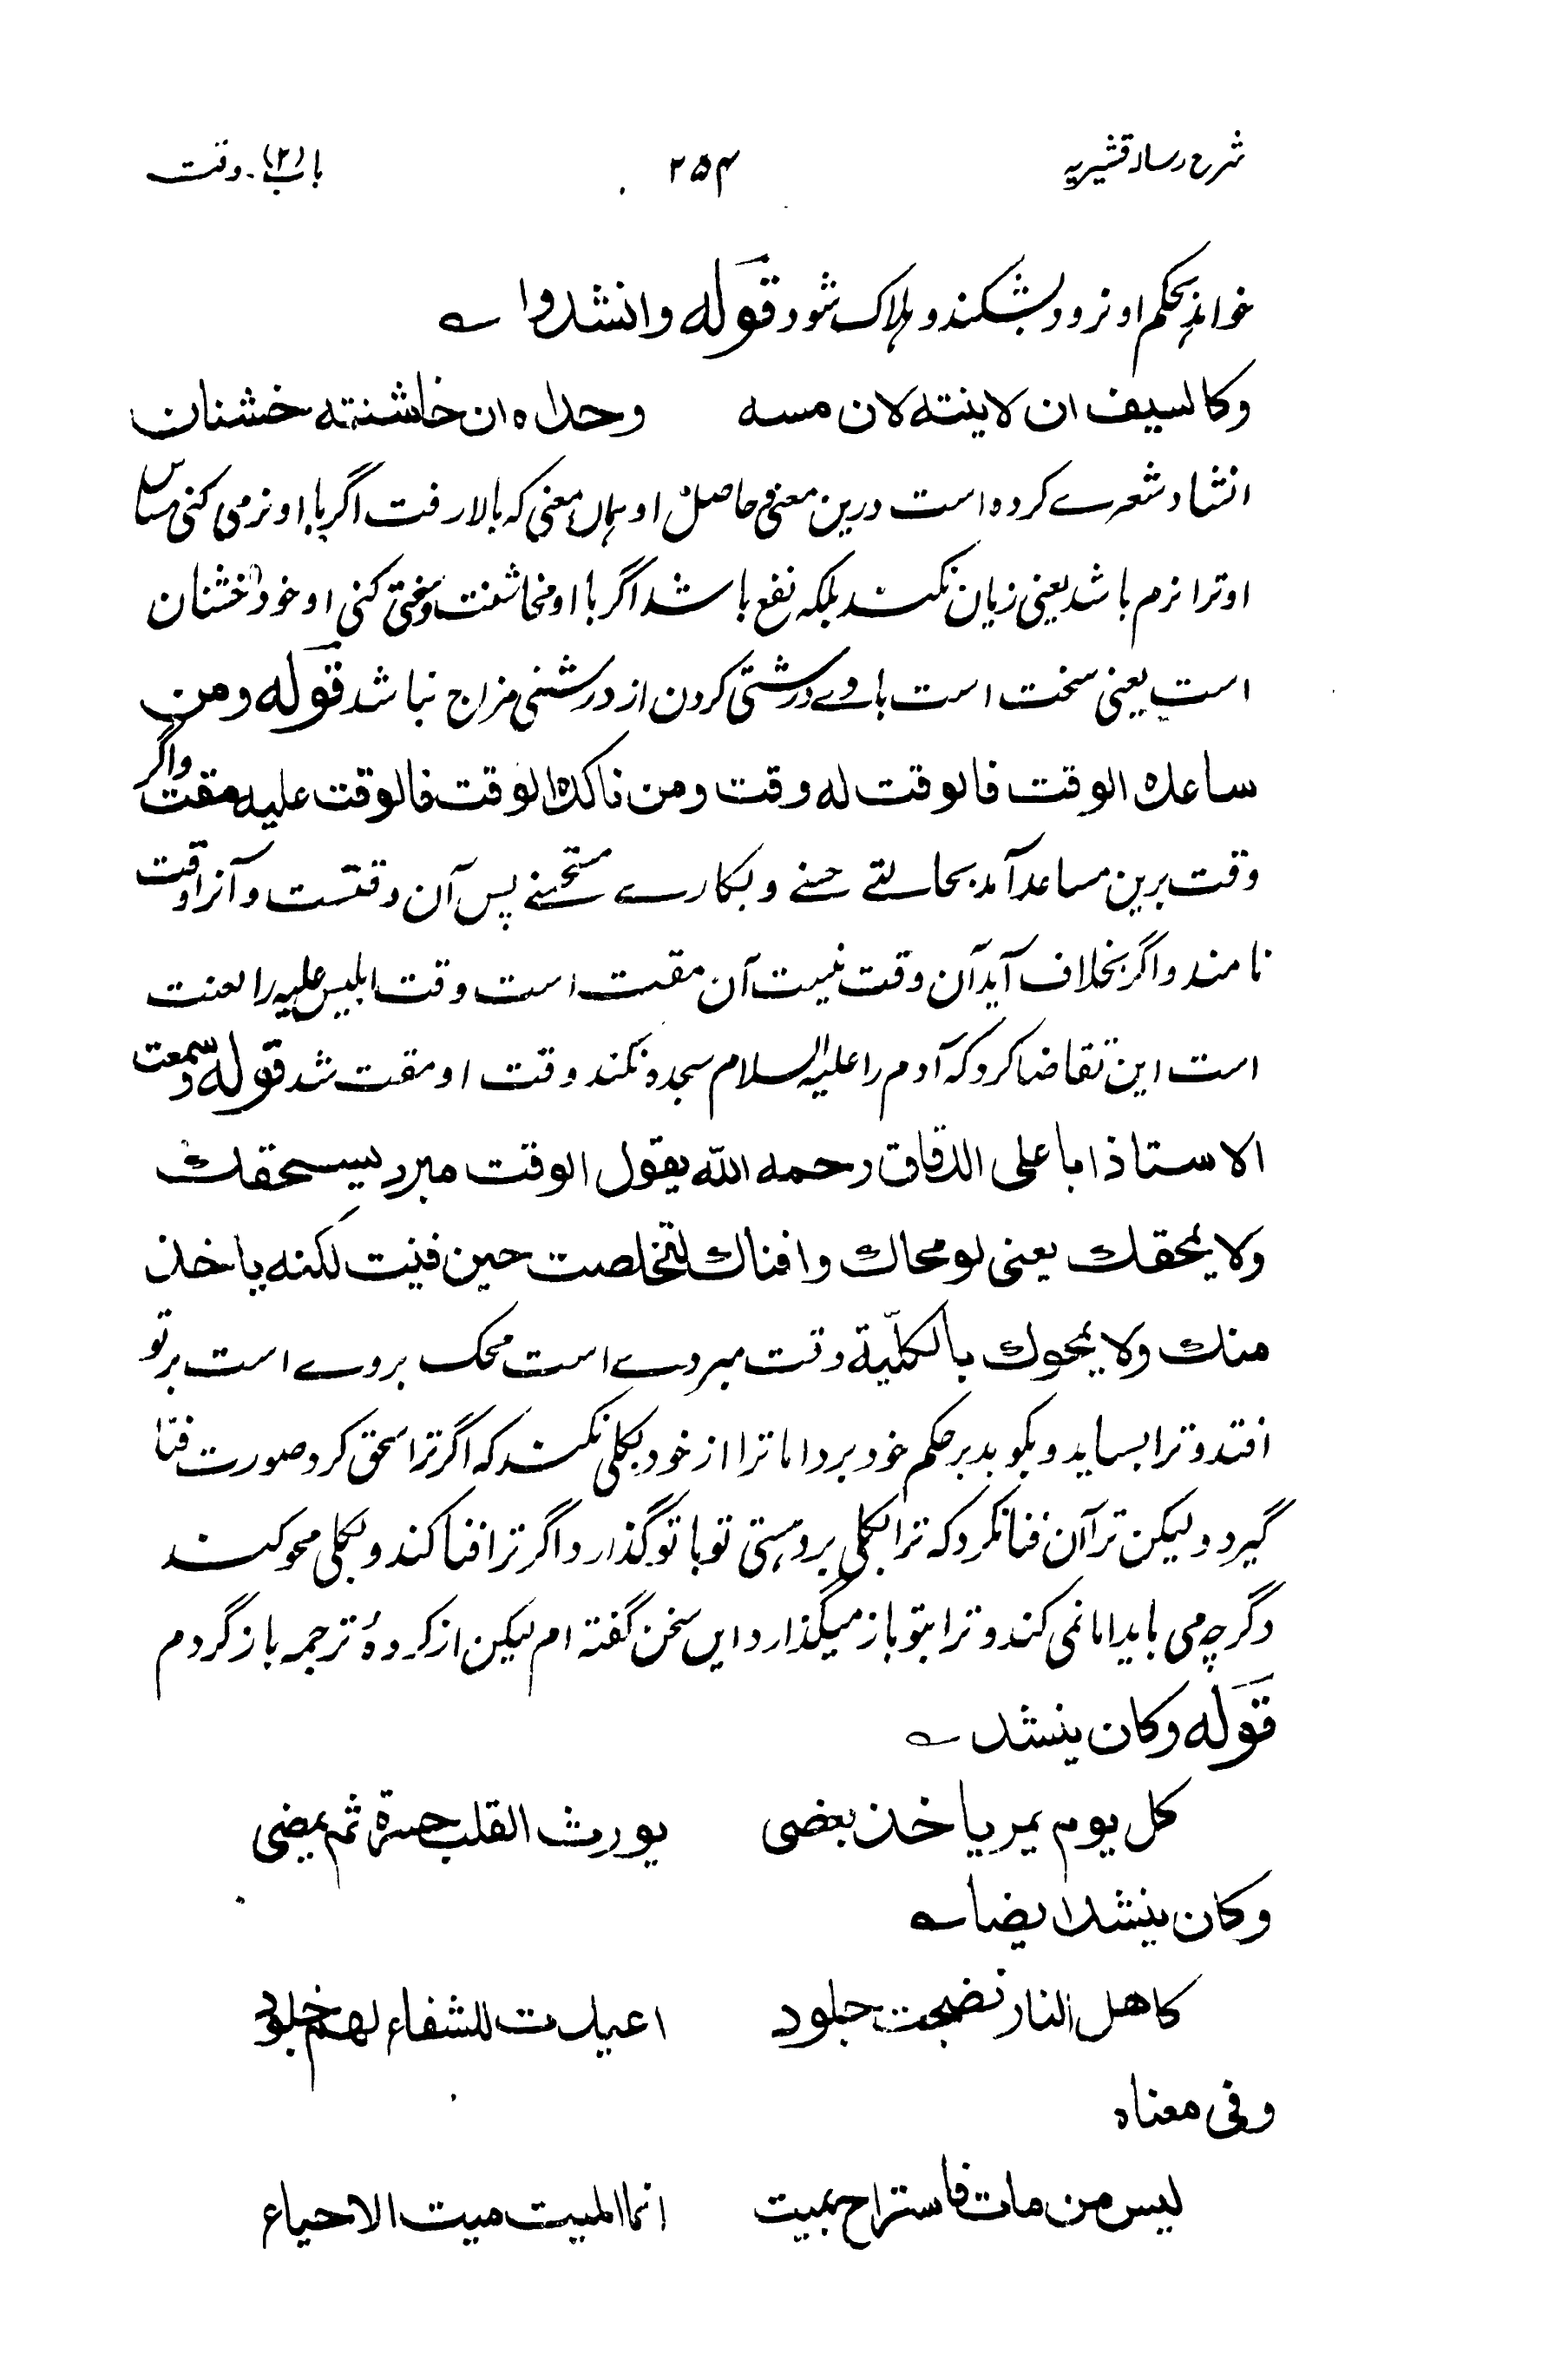 شرح رسالہ قشیریہ ۲۵۴ باب (۲)۔ وقت
خواند بحکم او نرود بشکند و ہلاک شود قوله وانشدوا ؎
وكالسيف ان لاينته لان مسه وحداه ان خاشنته خشنان
انشاد شعرے کرده است درین معنی حاصل او ہماں معنی کہ بالا رفت اگر با او نرمی کنی مساس
او ترا نرم باشد یعنی زیان نکند بلکہ نفع باشد اگر با او مخاشنت و سختی کنی او خود خشنان
است یعنی سخت است با وے درشتی کردن از درشتی مزاج نباشد قوله ومن
ساعده الوقت فالوقت له وقت ومن ناكده الوقت فالوقت عليه مقت واگر
وقت برین مساعد آمد بحالتے حسنے و بکارے مستحسنے پس آن وقتست و آنرا وقت
نامند و اگر بخلاف آید آن وقت نیست آن مقت است وقت ابلیس علیہ را لعنت
است این تقاضا کرد کہ آدم را علیہ السلام سجده نکند وقت او مقت شد قوله وسمعت
الاستاذ ابا على الدقاق رحمه الله يقول الوقت مبرد يسحقك
ولا يمحقك يعنى لو محاك وافناك لتخلصت حين فنيت لكنه ياخذ
منك ولا يمحوك بالكلّية وقت مبردے است محک بروے است بر تو
افتد و ترا بساید و بکوبد بر حکم خود برد اما ترا از خود بکلی نکند کہ اگر ترا سحق کرد صورت فنا
گیرد و لیکن ترا آن فنا نکرد کہ ترا بکلی برد ہستی تو با تو گذارد و اگر ترا فنا کند و بکلی محو کند
دگرچہ می باید اما نمی کند و ترا بتو باز میگذارد ایں سخن گفتہ ام لیکن از کرده ترجمہ باز گردم
قوله وكان ينشد ؎
كل يوم يمر ياخذ بعضى يورث القلب حسرة ثم يمضى
وكان ينشد ايضا ؎
كاهل النار نضجت جلود اعيدت للشفاء لهم جلود
وفى معناه
ليس من مات فاستراح بميت انما الميت ميت الاحياء